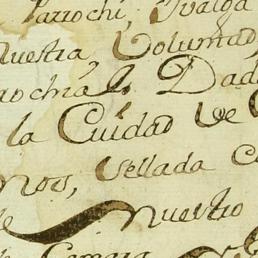 Parrochi, Ygualda
Nuestra, Voluntad,
rochial, Dad
la Ciudad de
nos, sellada c
nuestro
Camara